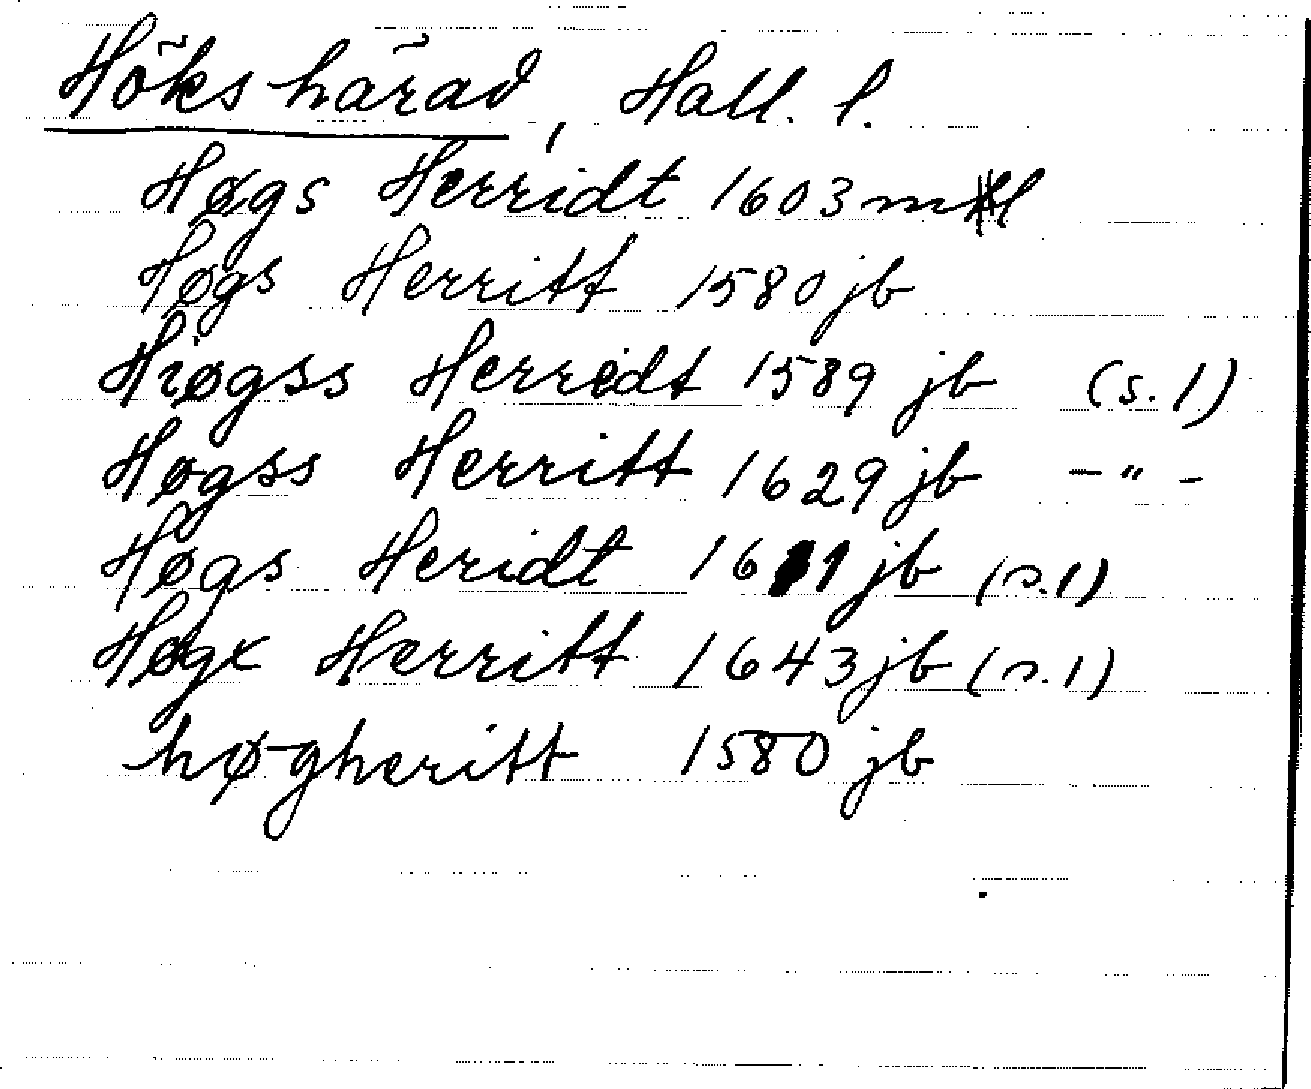 Höks härad, Hall. l.
Høgs Herridt 1603 ml
Høgs Herritt 1580 jb
Hiøgss Herredt 1589 jb (s. 1)
Høgss Herritt 1629 jb -"-
Høgs Heridt 1611 jb (s. 1)
Høgx Herritt 1643 jb (s. 1)
høgheritt 1580 jb